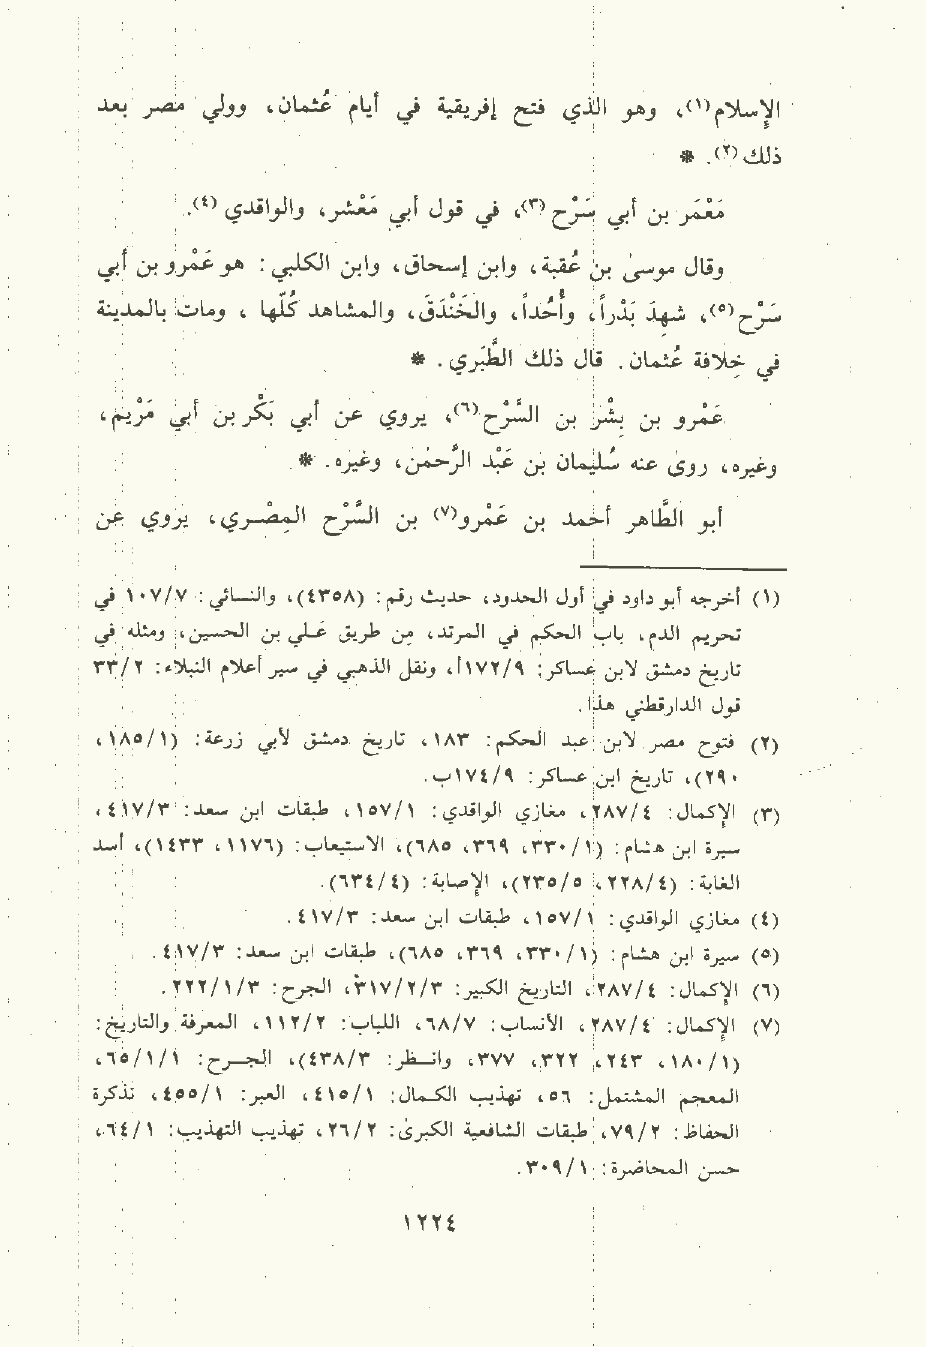 الإِسلام(١)، وهو الذي فتح إفريقية في أيام عُثمان، وولي مصر بعد
ذلك(٢). *
مَعْمَر بن أبي سَرْح(٣)، في قول أبي مَعْشر، والواقدي(٤).
وقال موسىٰ بن عُقبة، وابن إسحاق، وابن الكلبي: هو عَمْرو بن أبي
سَرْح(٥)، شهِدَ بَدْراً، وأُحُداً، والخَنْدَق، والمشاهد كُلّها، ومات بالمدينة
في خِلافة عُثمان. قال ذلك الطَّبَري. *
عَمْرو بن بِشْر بن السَّرْح(٦)، يروي عن أبي بَكْر بن أبي مَرْيم،
وغيره، روىٰ عنه سُليمان بن عَبْد الرَّحمٰن، وغيره. *
أبو الطَّاهر أحمد بن عَمْرو(٧) بن السَّرْح المِصْري، يروي عن
(١) أخرجه أبو داود في أول الحدود، حديث رقم: (٤٣٥٨)، والنسائي: ١٠٧/٧ في
تحريم الدم، باب الحكم في المرتد، مِن طريق عَلي بن الحسين، ومثله في
تاريخ دمشق لابن عساكر: ١٧٢/٩أ، ونقل الذهبي في سير أعلام النبلاء: ٣٣/٢
قول الدارقطني هذا.
(٢) فتوح مصر لابن عبد الحكم: ١٨٣، تاريخ دمشق لأبي زرعة: (١٨٥/١،
٢٩٠)، تاريخ ابن عساكر: ١٧٤/٩ب.
(٣) الإِكمال: ٢٨٧/٤، مغازي الواقدي: ١٥٧/١، طبقات ابن سعد: ٤١٧/٣،
سيرة ابن هشام: (٣٣٠/١، ٣٦٩، ٦٨٥)، الاستيعاب: (١١٧٦، ١٤٣٣)، أسد
الغابة: (٢٢٨/٤، ٢٣٥/٥)، الإِصابة: (٦٣٤/٤).
(٤) مغازي الواقدي: ١٥٧/١، طبقات ابن سعد: ٤١٧/٣.
(٥) سيرة ابن هشام: (٣٣٠/١، ٣٦٩، ٦٨٥)، طبقات ابن سعد: ٤١٧/٣.
(٦) الإِكمال: ٢٨٧/٤، التاريخ الكبير: ٣١٧/٢/٣، الجرح: ٢٢٢/١/٣.
(٧) الإِكمال: ٢٨٧/٤، الأنساب: ٦٨/٧، اللباب: ١١٢/٢، المعرفة والتاريخ:
(١٨٠/١، ٢٤٣، ٣٢٢، ٣٧٧، وانظر: ٤٣٨/٣)، الجرح: ٦٥/١/١،
المعجم المشتمل: ٥٦، تهذيب الكمال: ٤١٥/١، العبر: ٤٥٥/١، تذكرة
الحفاظ: ٧٩/٢، طبقات الشافعية الكبرىٰ: ٢٦/٢، تهذيب التهذيب: ٦٤/١،
حسن المحاضرة: ٣٠٩/١.
١٢٢٤